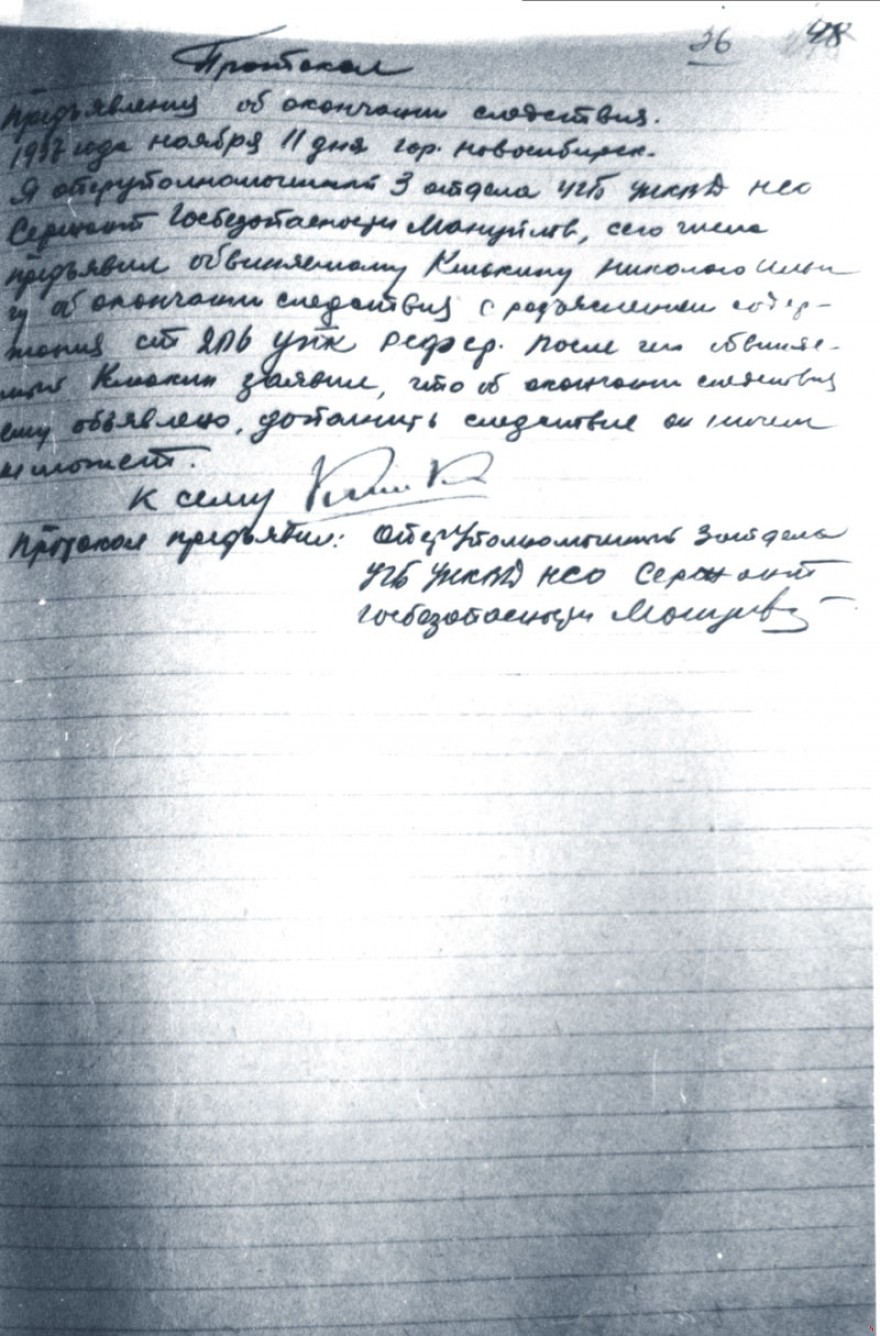 26 48
Протокол
предъявления об окончании следствия.
1937 года ноября 11 дня гор. Новосибирск.
Я оперуполномоченный 3 отдела УГБ УНКВД НСО
Сержант Госбезопасности Мануйлов, сего числа
предъявил обвиняемому Клюкину Николаю Ильи-
чу об окончании следствия с разъяснением содер-
жания ст 206 УПК РСФСР. После чего обвиняе-
мый Клюкин заявил, что об окончании следствия
ему объявлено, дополнить следствие он ничем
не может.
К сему
Протокол предъявил: Оперуполномоченный 3 отдела
УГБ УНКВД НСО Сержант
госбезопасности